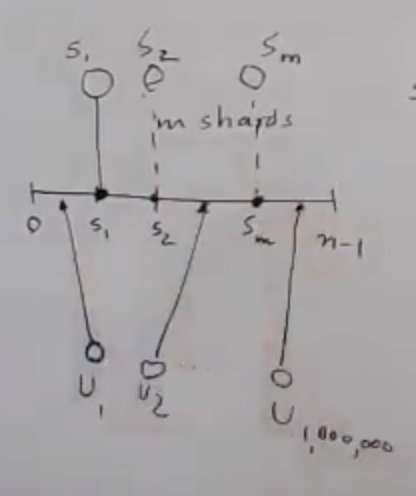 S₁ S₂ Sₘ
m shards
0 s₁ s₂ sₘ n-1
U₁ U₂ .... U₁,₀₀₀,₀₀₀